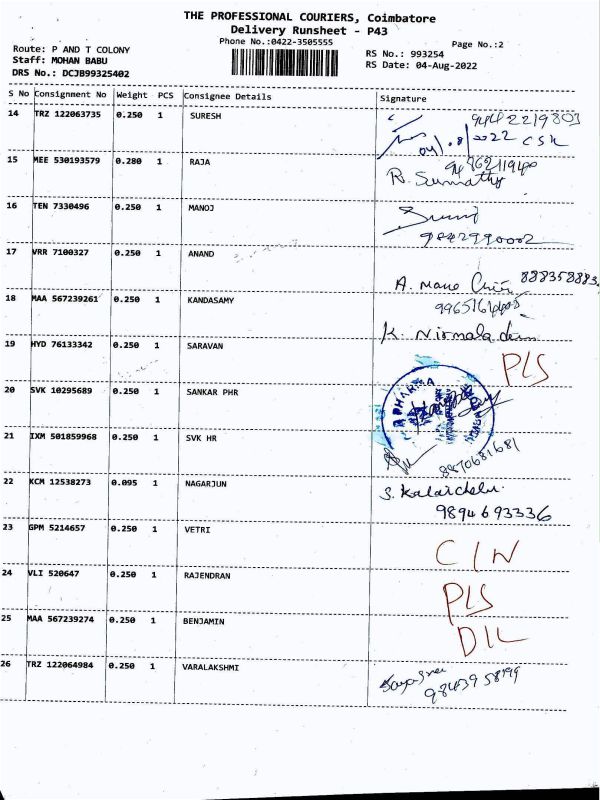 THE PROFESSIONAL COURIERS, Coimbatore
Delivery Runsheet - P43
Phone No.:0422-3505555
Page No.:2
Route: P AND T COLONY
Staff: MOHAN BABU
DRS No.: DCJB99325402
RS No.: 993254
RS Date: 04-Aug-2022
S No Consignment No Weight PCS Consignee Details Signature
14 TRZ 122063735 0.250 1 SURESH
04/.8/2022 CSK
15 MEE 530193579 0.280 1 RAJA
R. Sumathy
16 TEN 7330496 0.250 1 MANOJ
9842990002
17 VRR 7100327 0.250 1 ANAND
A. Mano 888358883
18 MAA 567239261 0.250 1 KANDASAMY
K. Nirmala
19 HYD 76133342 0.250 1 SARAVAN
PLS
20 SVK 10295689 0.250 1 SANKAR PHR
PHARMA
21 IXM 501859968 0.250 1 SVK HR
8870681681
22 KCM 12538273 0.095 1 NAGARJUN
S. Kalaichelvi
9894693336
23 GPM 5214657 0.250 1 VETRI
C/N
24 VLI 520647 0.250 1 RAJENDRAN
PLS
25 MAA 567239274 0.250 1 BENJAMIN
D1L
26 TRZ 122064984 0.250 1 VARALAKSHMI